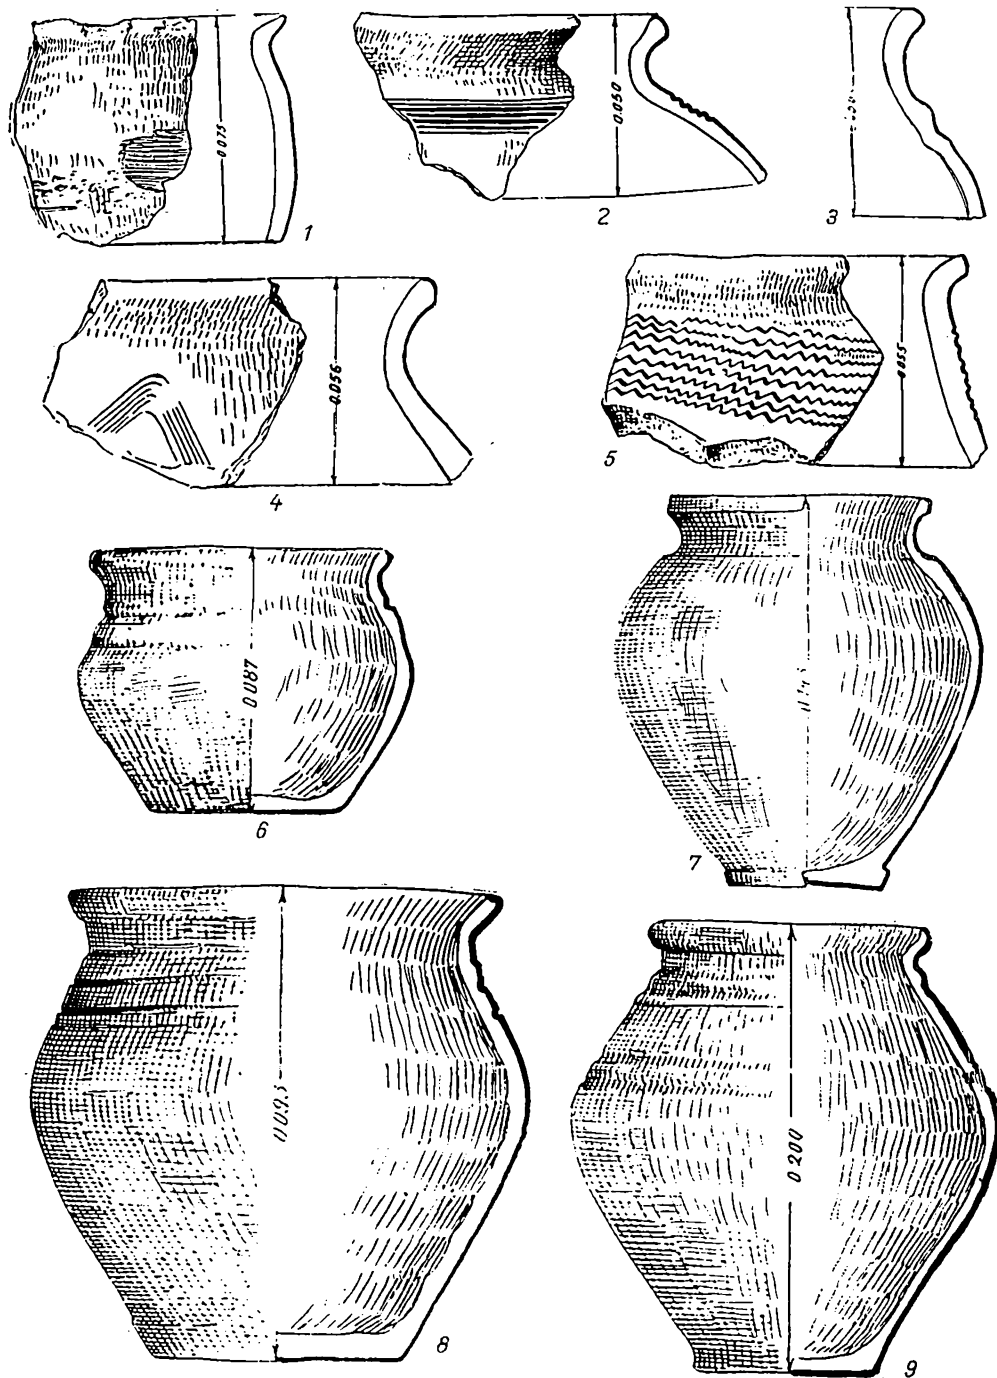 0.075
1
0.050
2
3
0.056
4
0.055
5
0.087
6
7
8
0.200
9